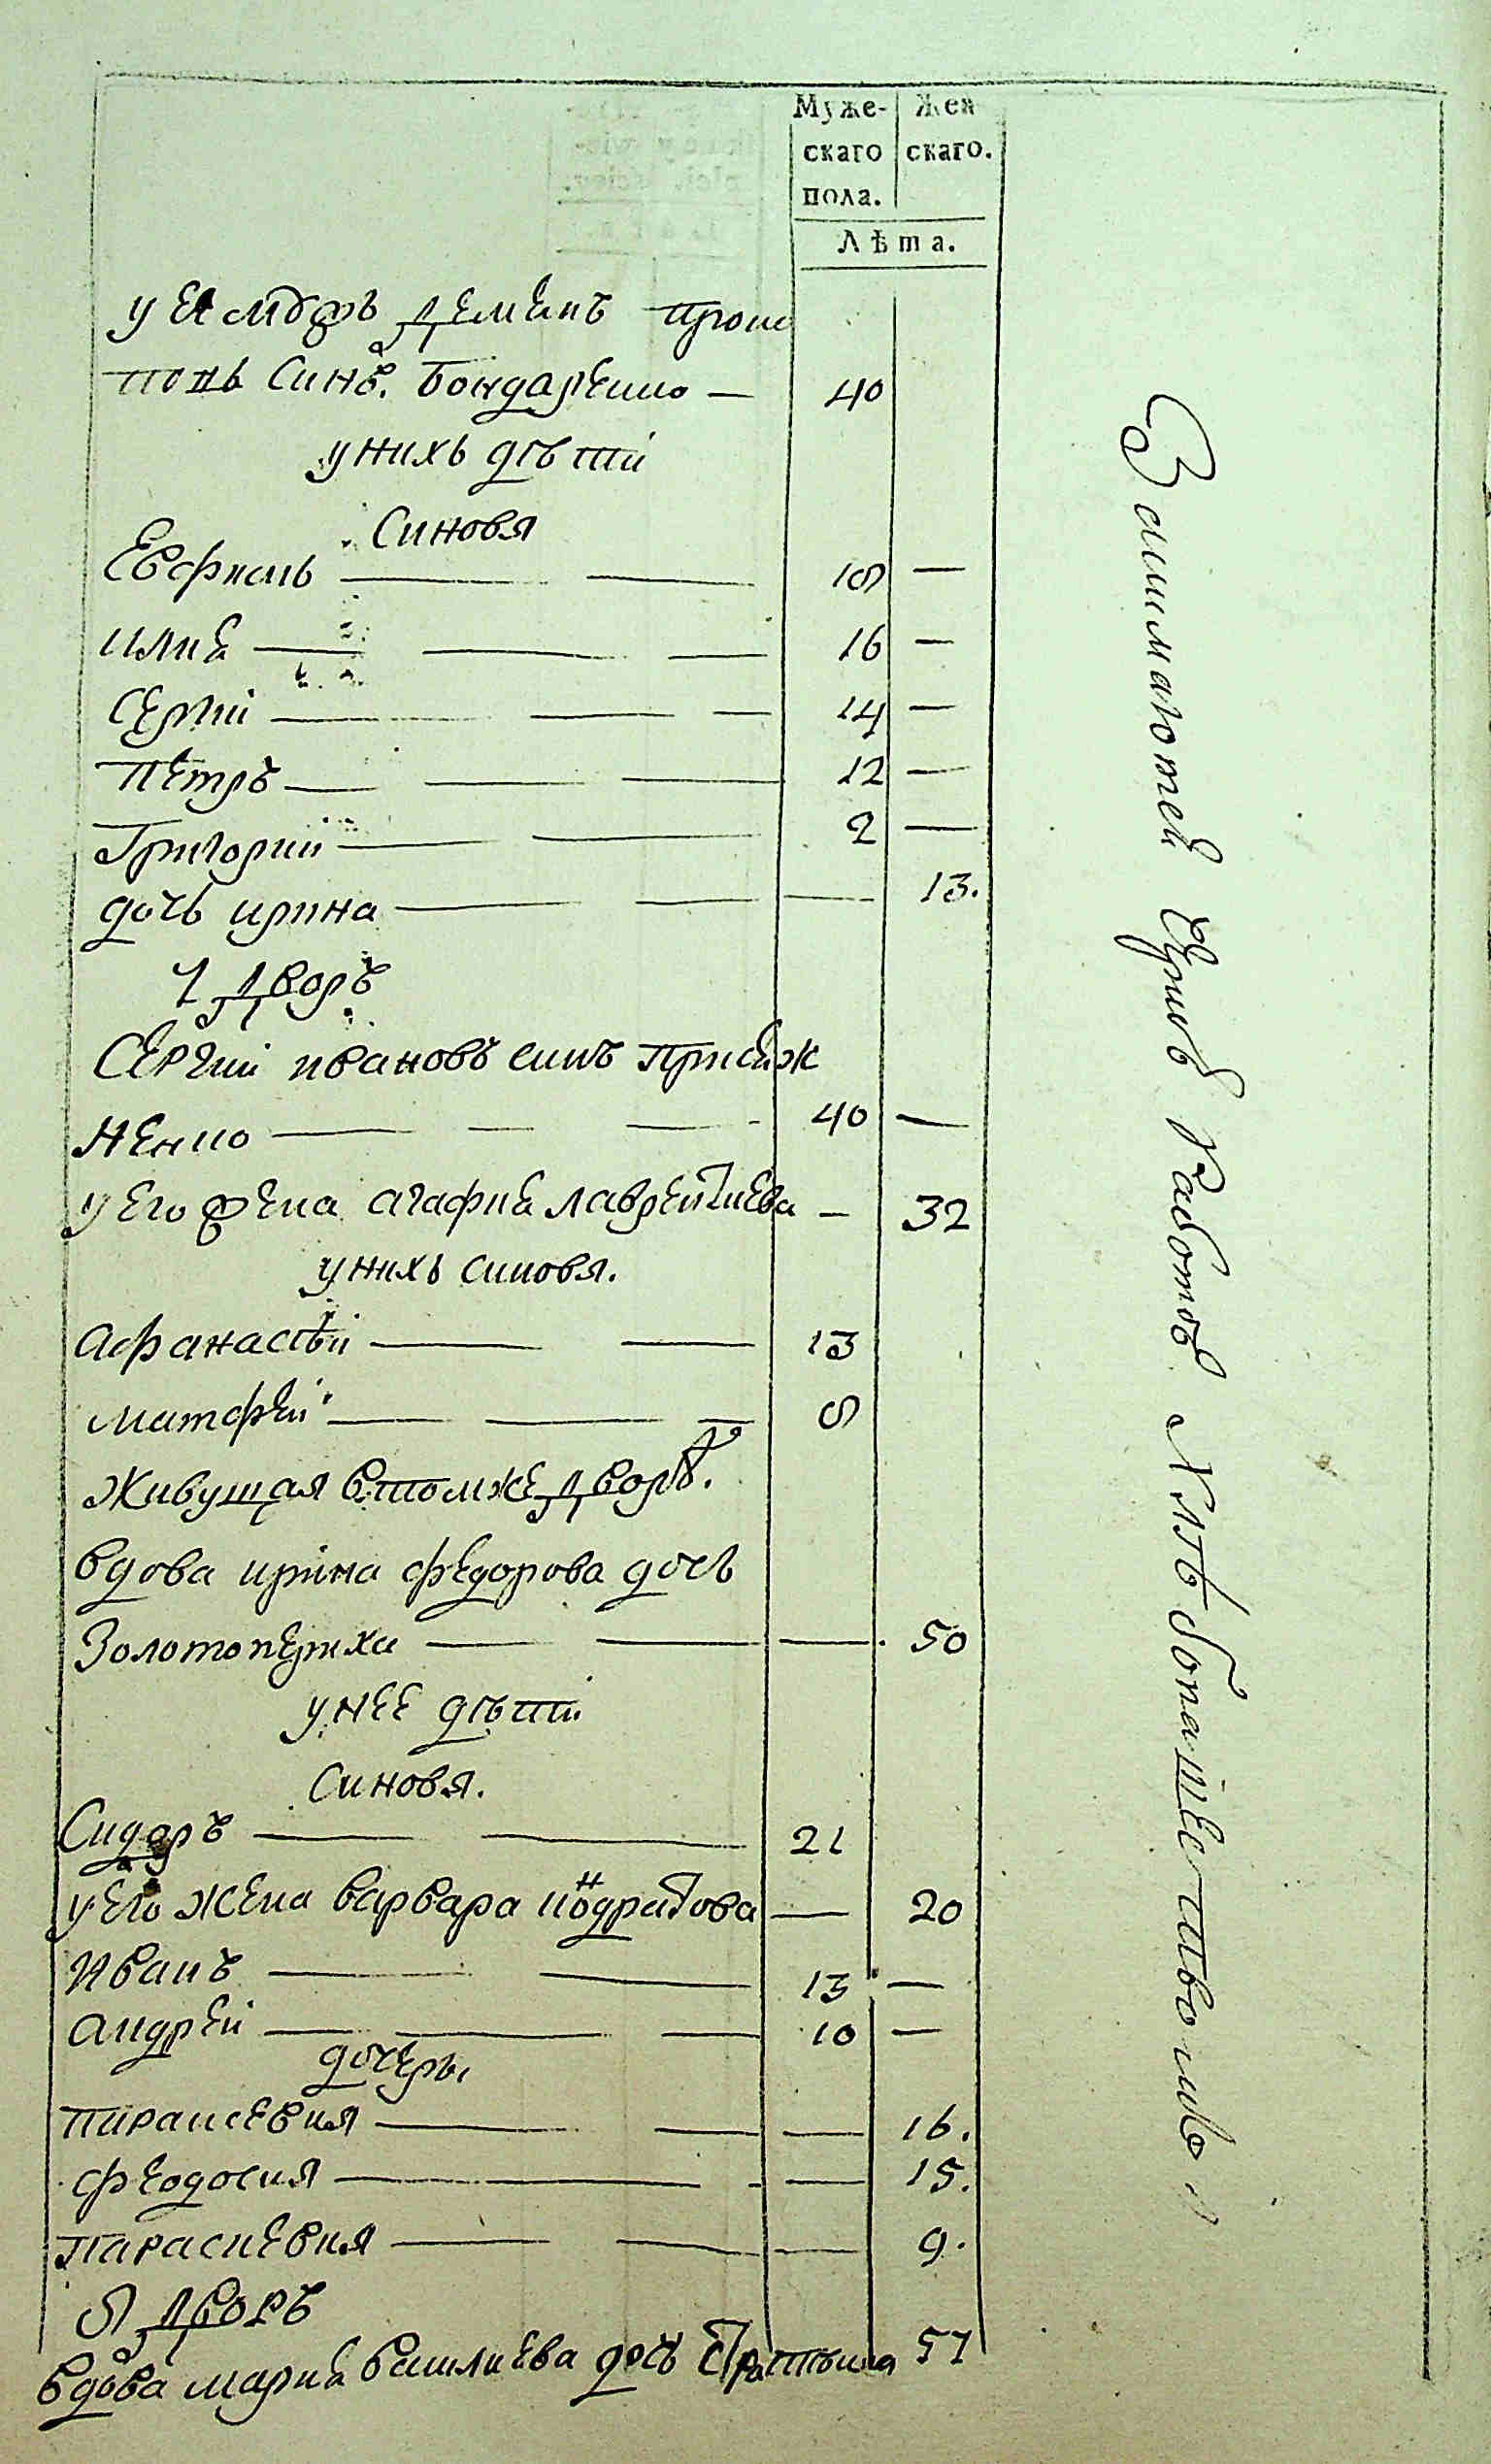 Муже- Жен
скаго скаго.
пола.
Лѣта.
у ея мужъ Демянъ Проко
повъ синъ Бондаренко — 40
у нихъ дѣти
Синовя
Евфимъ — 18 —
илия — 16 —
Сергій — 14 —
Петръ — 12 —
Григорий — 2 —
дочь ирина — 13.
7 дворъ
Сергий ивановъ синъ Присяж
ненко — 40 —
у его жена агафия лаврентиева — 32
у нихъ синовя.
Афанасѣй — 13
матфѣй — 8
живущая втомже дворѣ.
вдова ирина федорова дочь
Золотопериха — 50
унее дѣти
Синовя.
Сидоръ — 21
у его жена варвара кондратова — 20
Иванъ — 13 —
андрей — 10 —
дочеры
параскевия — 16.
феодосия — 15.
параскевия — 9.
8 дворъ
вдова мария василиева дочь 57
Занимаютей Чрнов Работов Хлѣбопашествомъ